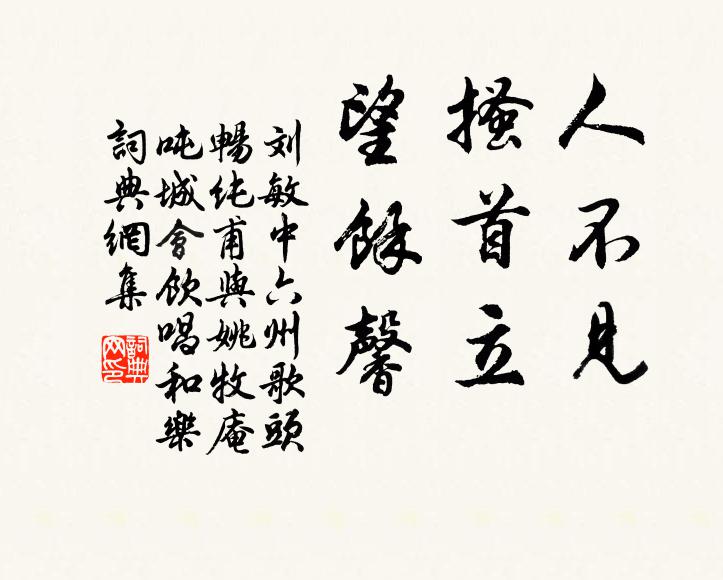 人不見
搔首立
望餘馨
刘敏中六州歌頭
暢纯甫與姚牧庵
吨城會飲唱和樂
詞典網集
詞典
网印